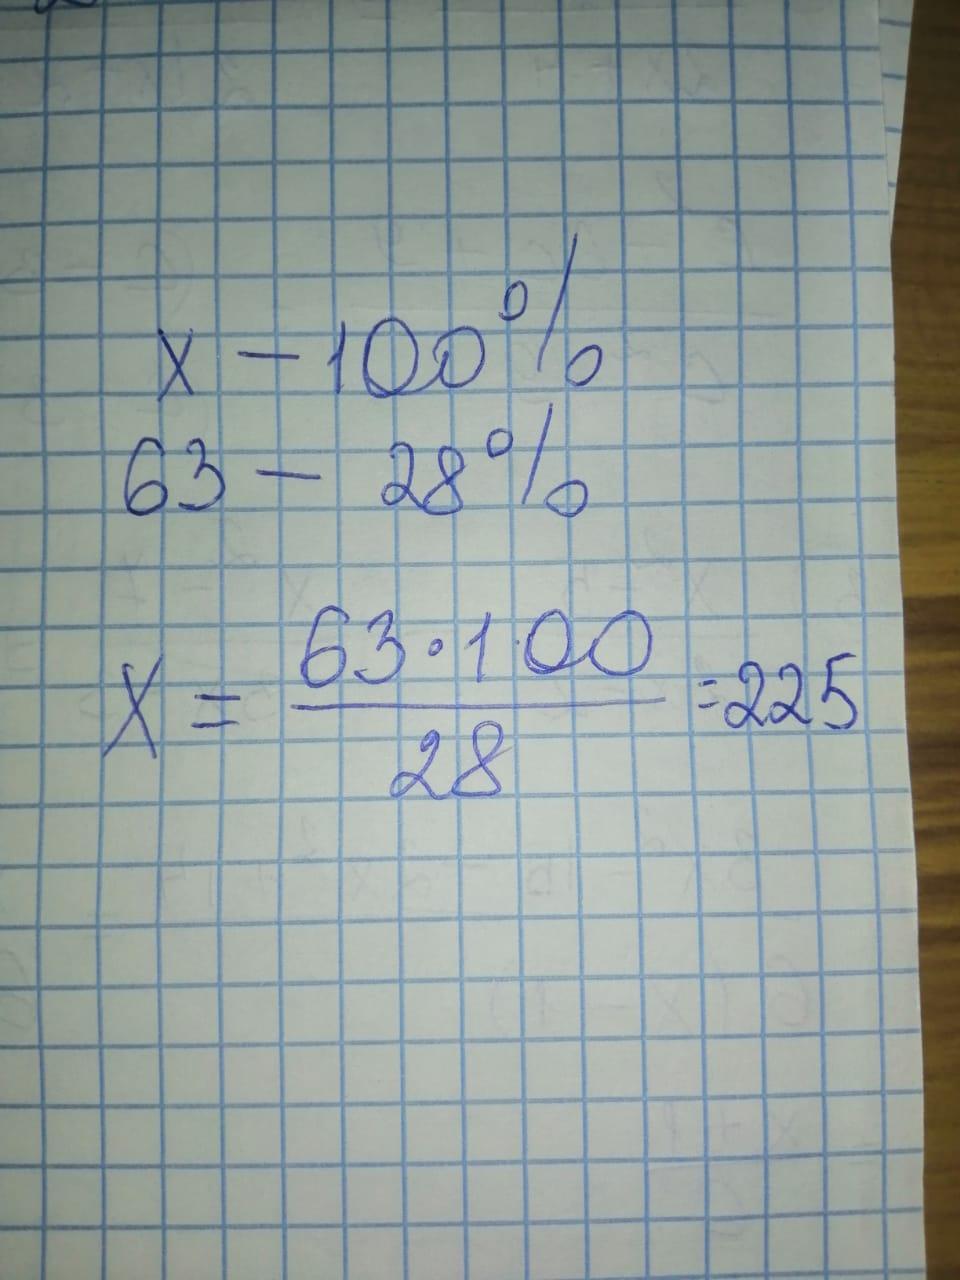 x — 100%
63 — 28%
X = 63·100 / 28 = 225